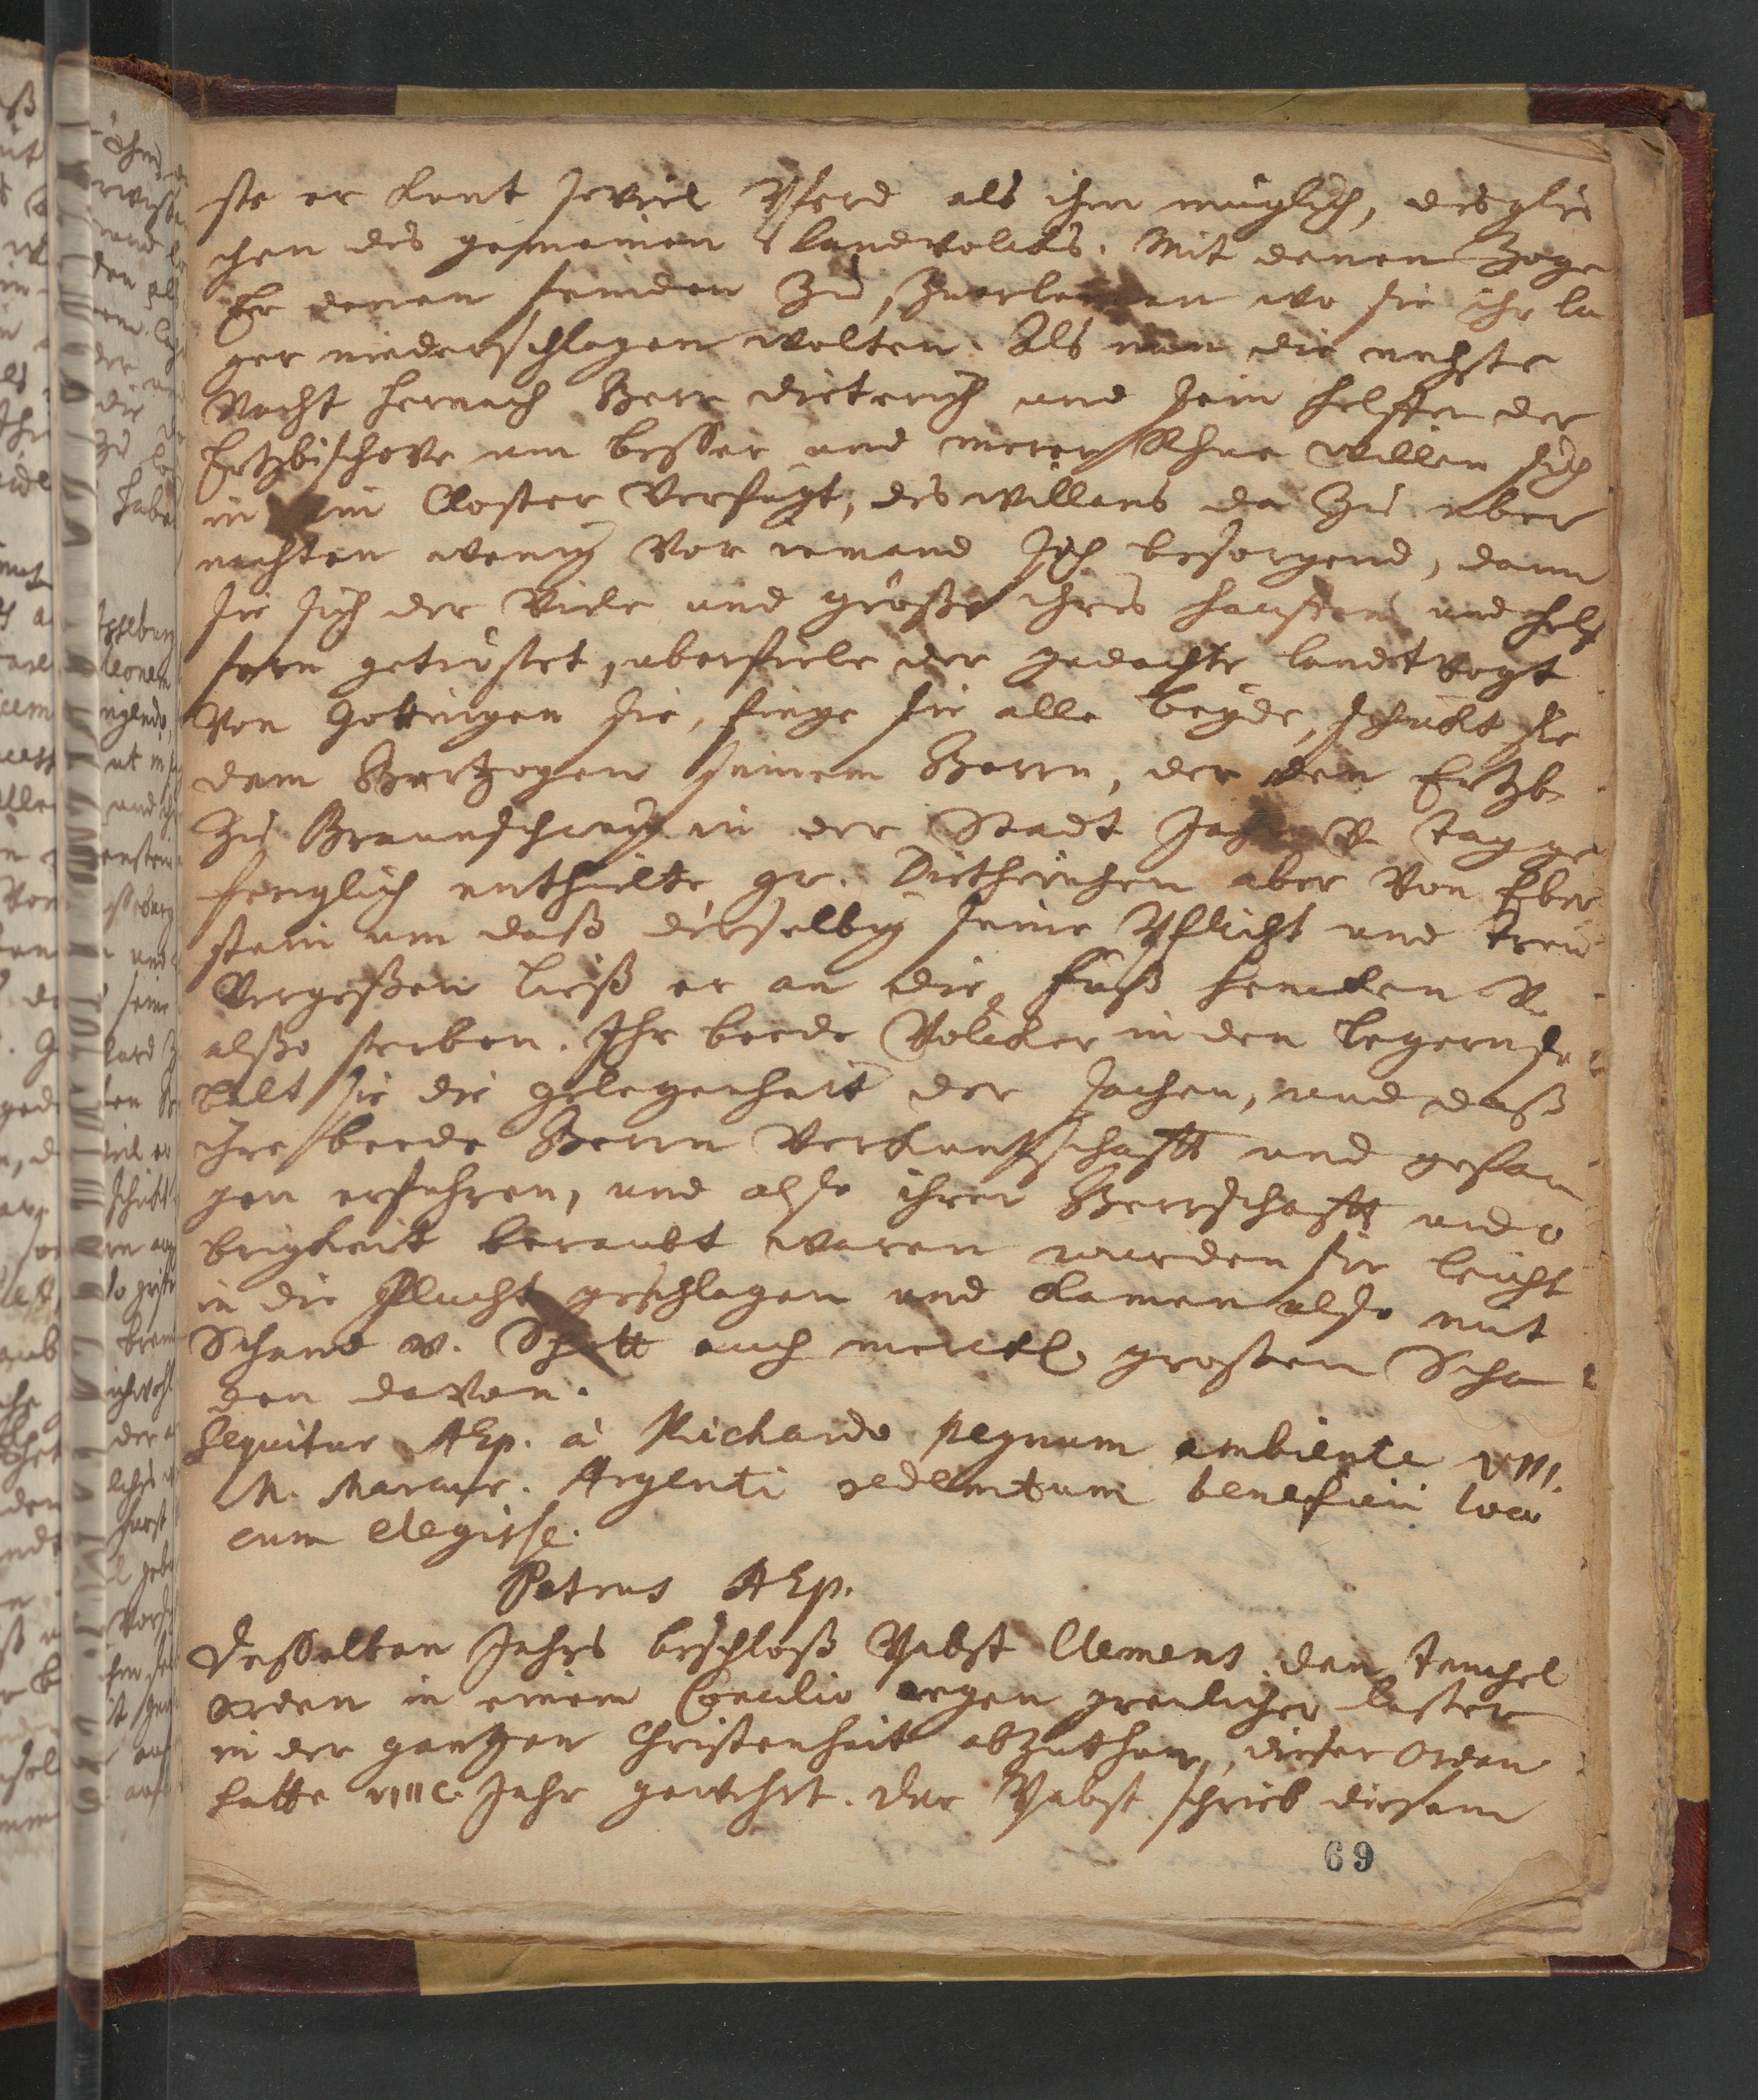 ste er kont soviel Pferd als ihm müglich, desglei
chen des gemeinen Landvolcks. Mit denen Zoge
Er denen feinden Zu, wo sie ihr la
ger niederschlagen wolten. Als nun die nechste
Nacht hernach Herr Dieterich und sein helffer der
Ertzbischove um besser und merer Rhue willen sich
in ein Closter verfügt, des willens da Zu uber
nachten wenig vor iemand sich besorgend, dann
sie sich der Viele und größe ihres hauffens und helf
fern getröstet, uberfiele der gedachte landtvogt
von Gottingen sie, finge sie alle beyde, schickt sie
dem Hertzogen seinem Herrn, der den Ertzb.
Zu Braunschweig in der Stadt Jahr v. tag ge
fenglich enthielte, gr. Dietherichen aber von Eber
stein um daß derselbig seine Pflicht und treu
vergeßen ließ er an die füß hencken v.
alßo sterben. Ihr beede Völcker in den legern so
balt sie die gelegenheit der sachen, und daß
ihre beede Herrn verkuntschafft und gefan
gen erfuhren, und also ihrer Herrschafft und o
brigkeit beraubt waren wurden sie leicht
in die Flucht geschlagen und kamen also mit
Schand v. Spott auch merckl. großem Scha
den davon.
Sequitur AEp. à Richardo regnum ambiente VIII.
M. Marcar. Argenti redemtum beneficii loco
eum elegisse.
Petrus AEp.
Desselben Jahrs beschloß Pabst Clemens den tempel
orden in einem Concilio wegen greulicher laster
in der gantzen Christenheit abzuthun, dieser Orden
hatte VIIIC. Jahr gewehrt. Der Pabst schrieb diesem
69